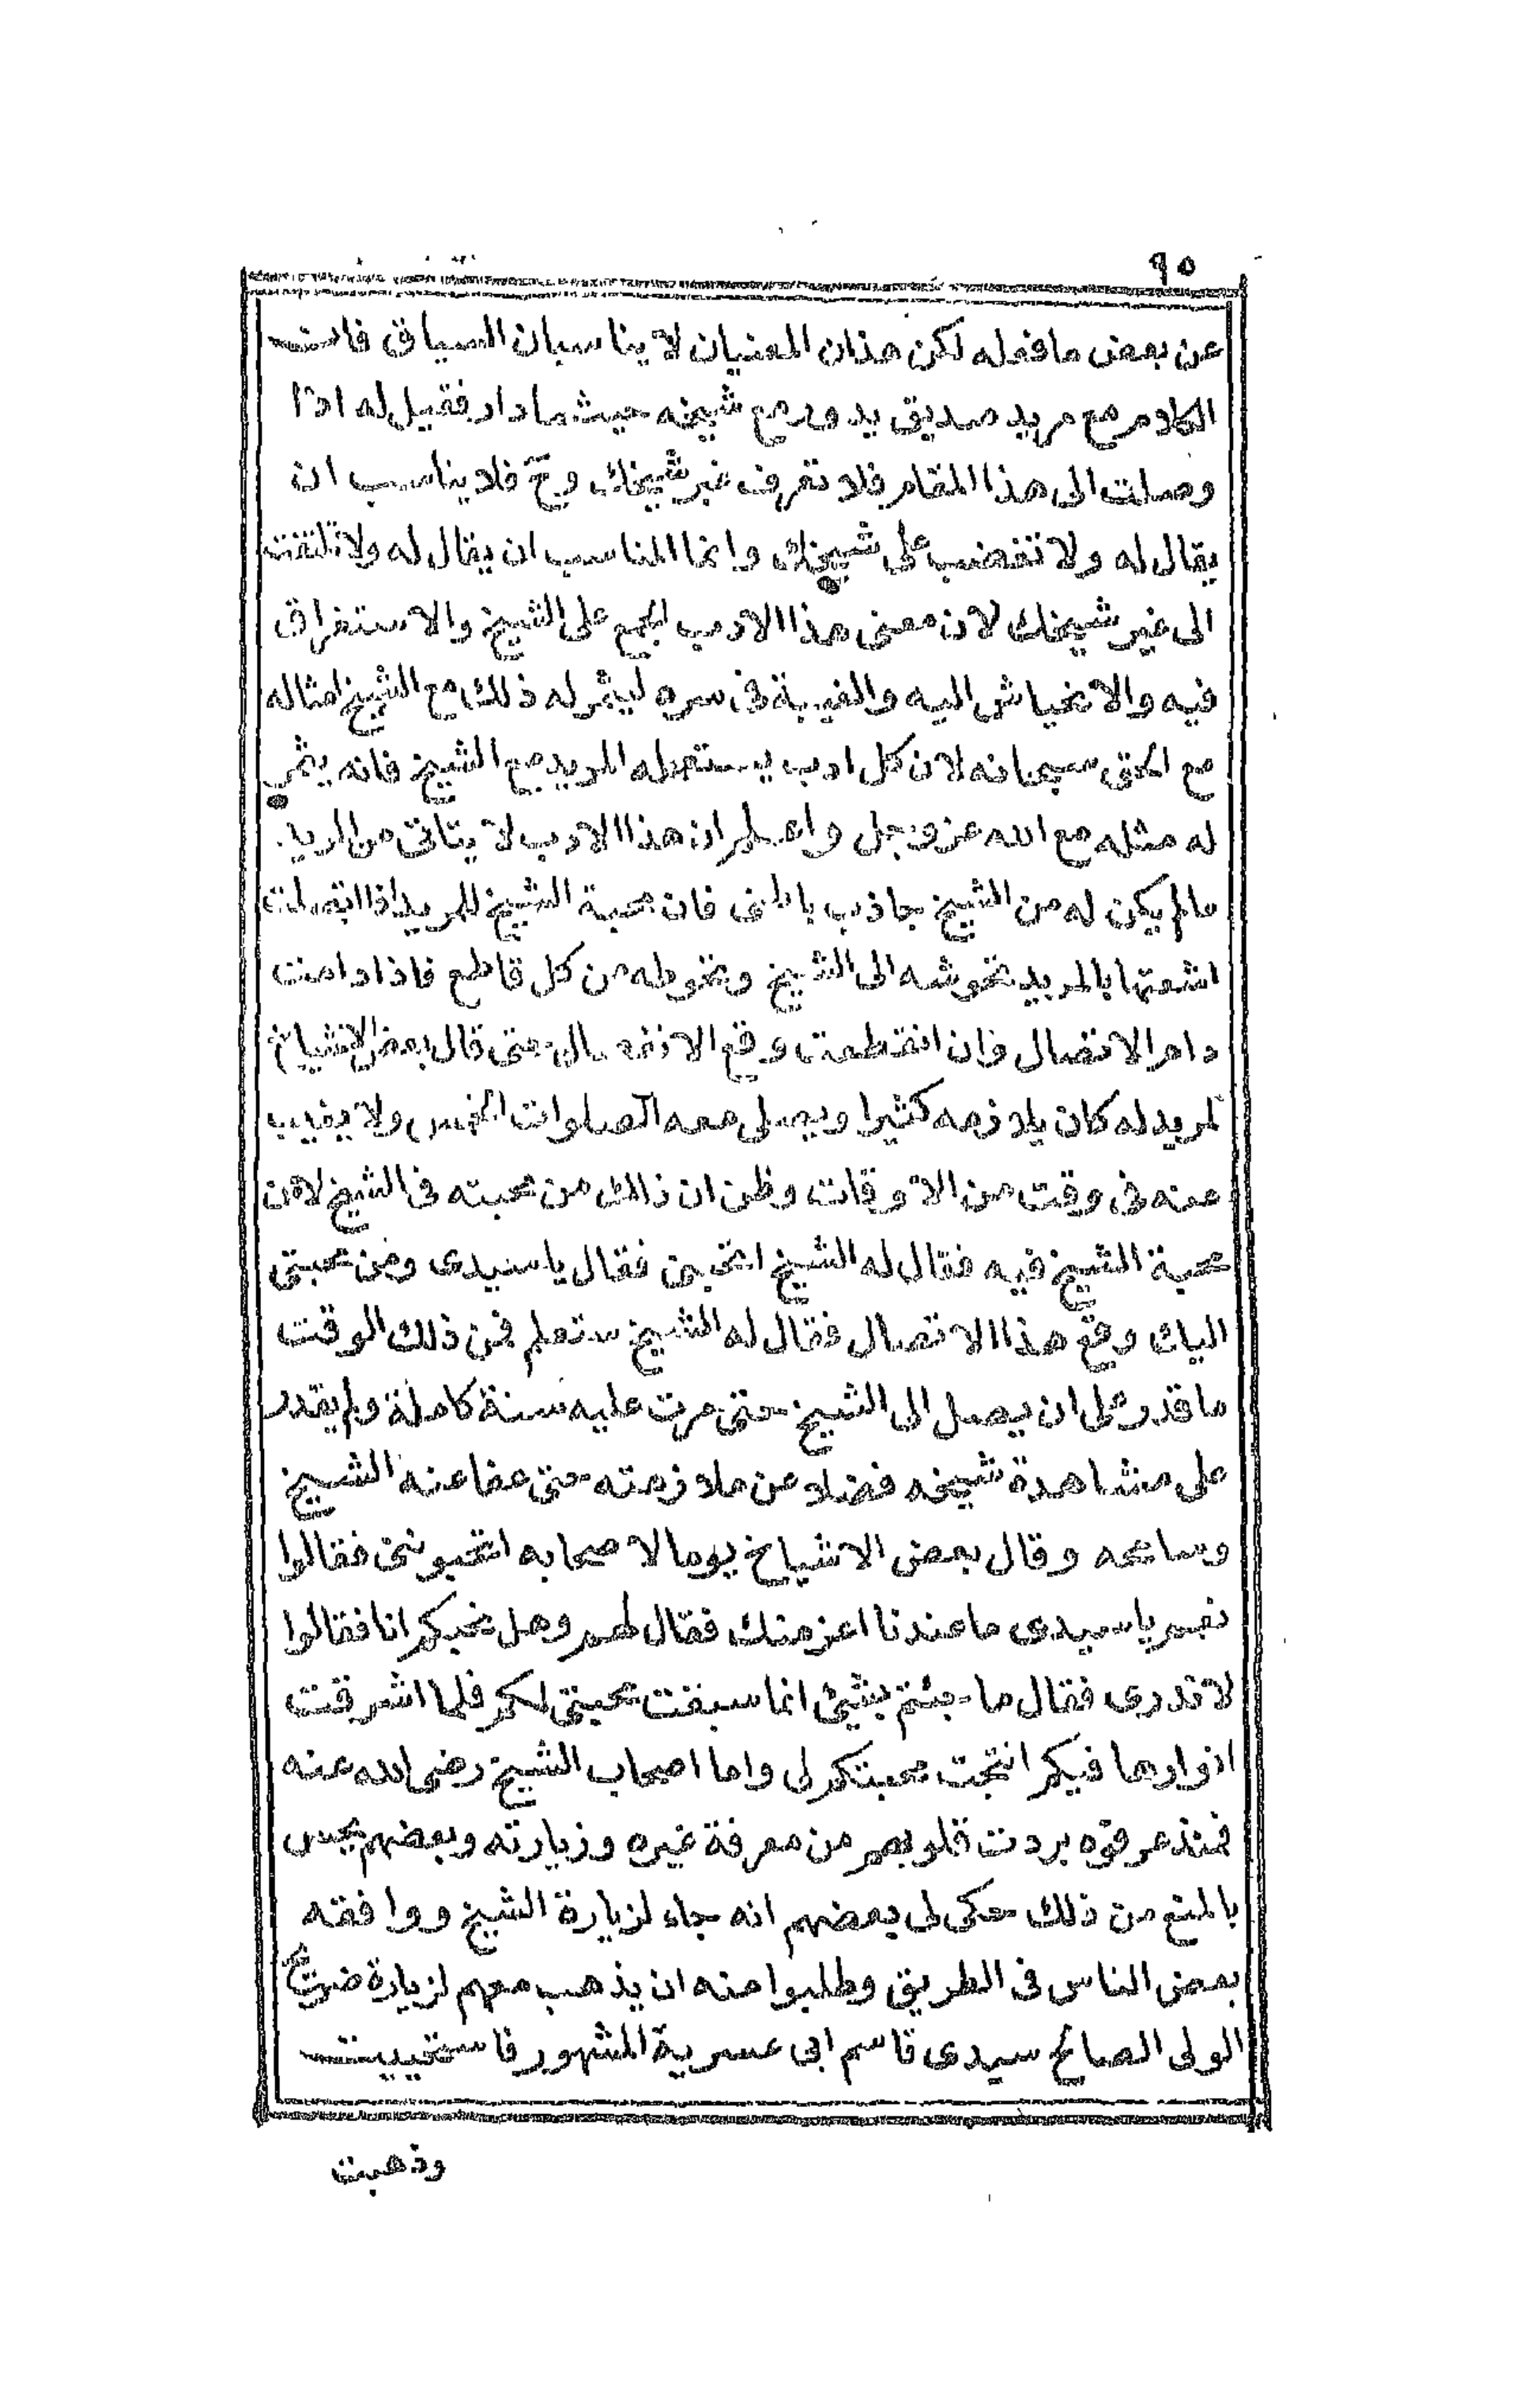 ٩٥
عن بعض ما فعله لكن هذان المعنيان لا يناسبان السياق فانت
الكلام مع مريد صديق يدور مع شيخه حيث ما دار فقيل له اذا
وصلت الى هذا المقام فلا تعرف غير شيخك وح فلا يناسب ان
يقال له ولا تغضب على شيخك وانما المناسب ان يقال له ولا تلتفت
الى غير شيخك لان معنى هذا الادب الجمع على الشيخ والاستغراق
فيه والانحياش اليه والغيبة فى سره ليثمر له ذلك مع الشيخ امثاله
مع الحق سبحانه لان كل ادب يستعمله المريد مع الشيخ فانه يثمر
له مثله مع الله عز وجل واعلم ان هذا الادب لا يتاتى من المريد
ما لم يكن له من الشيخ جاذب باطنى فان محبة الشيخ للمريد اذا اتصلت
اشعتها بالمريد تحوشه الى الشيخ وتحوطه من كل قاطع فاذا دامت
دام الاتصال وان انقطعت وقع الانفصال حتى قال بعض الاشياخ
لمريد له كان يلازمه كثيرا ويصلى معه الصلوات الخمس ولا يغيب
عنه فى وقت من الاوقات وظن ان ذالك من محبته فى الشيخ لا من
محبة الشيخ فيه فقال له الشيخ اتحبنى فقال يا سيدى ومن محبتى
اليك وقع هذا الاتصال فقال له الشيخ ستعلم فمن ذلك الوقت
ما قدر على ان يصل الى الشيخ حتى مرت عليه سنة كاملة ولم يقدر
على مشاهدة شيخه فضلا عن ملازمته حتى عفا عنه الشيخ
وسامحه وقال بعض الاشياخ يوما لاصحابه اتحبوننى فقالوا
نعم يا سيدى ما عندنا اعز منك فقال لهم وهل نحبكم انا فقالوا
لا ندرى فقال ما جئتم بشيئ انما سبقت محبتى لكم فلما اشرقت
انوارها فيكم انتجت محبتكم لى واما اصحاب الشيخ رضى الله عنه
فمنذ عرفوه بردت قلوبهم من معرفة غيره وزيارته وبعضهم يحس
بالمنع من ذلك حكى لى بعضهم انه جاء لزيارة الشيخ ووافقه
بعض الناس فى الطريق وطلبوا منه ان يذهب معهم لزيارة ضريح
الولى الصالح سيدى قاسم ابى عسرية المشهور فاستحييت
وذهبت